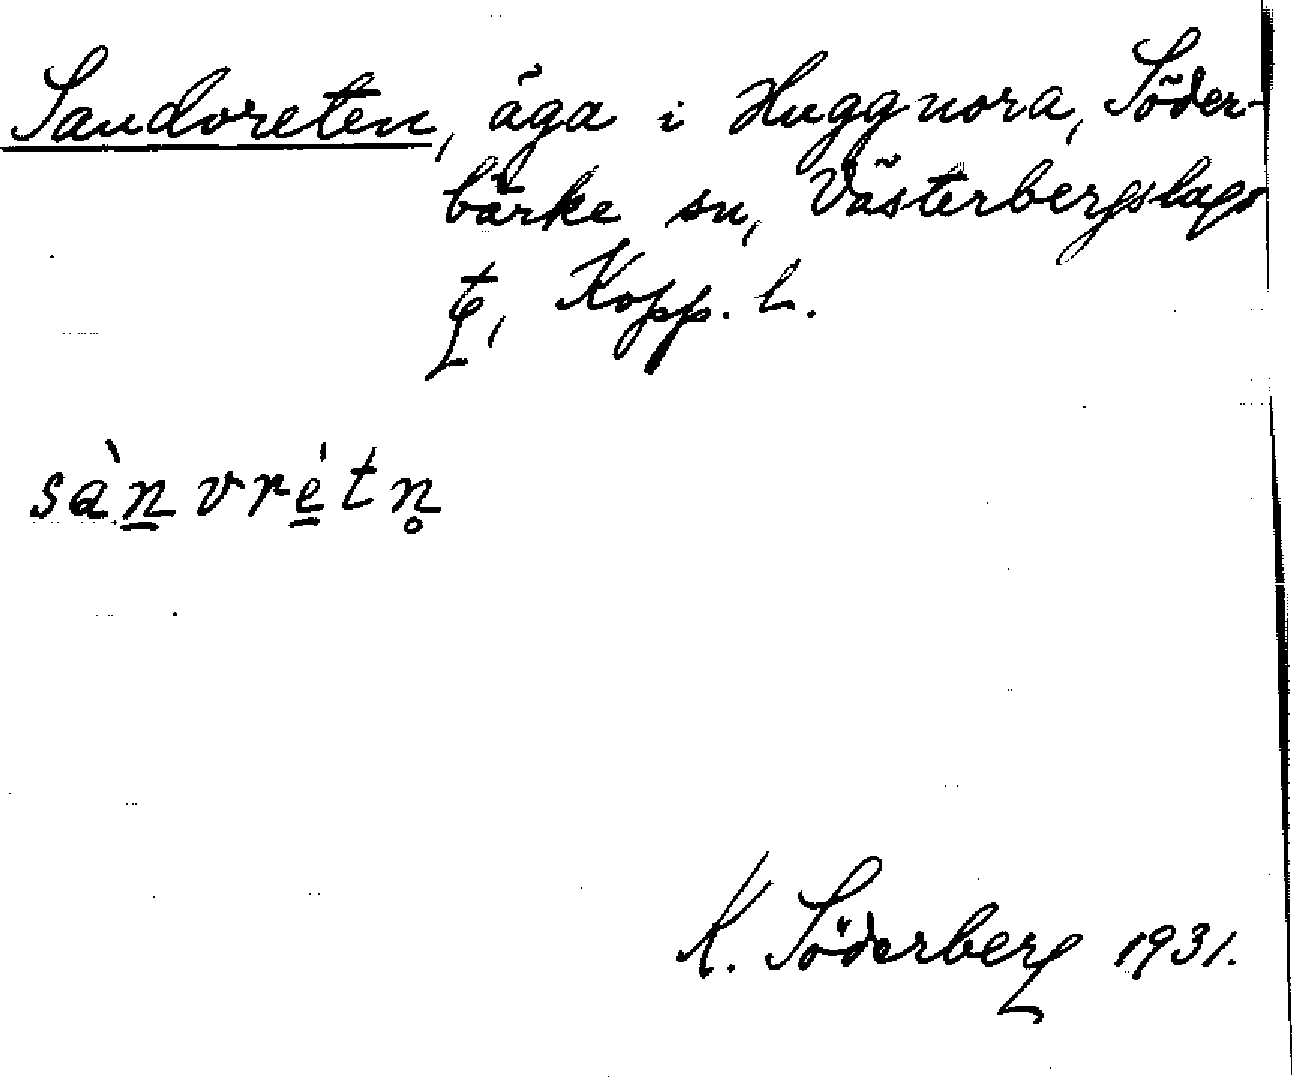 Sandvreten, äga i Huggnora, Söder-
bärke sn, Västerbergslags
t, Kopp. l.
sàn̲vré̲tn̥
K. Söderberg 1931.